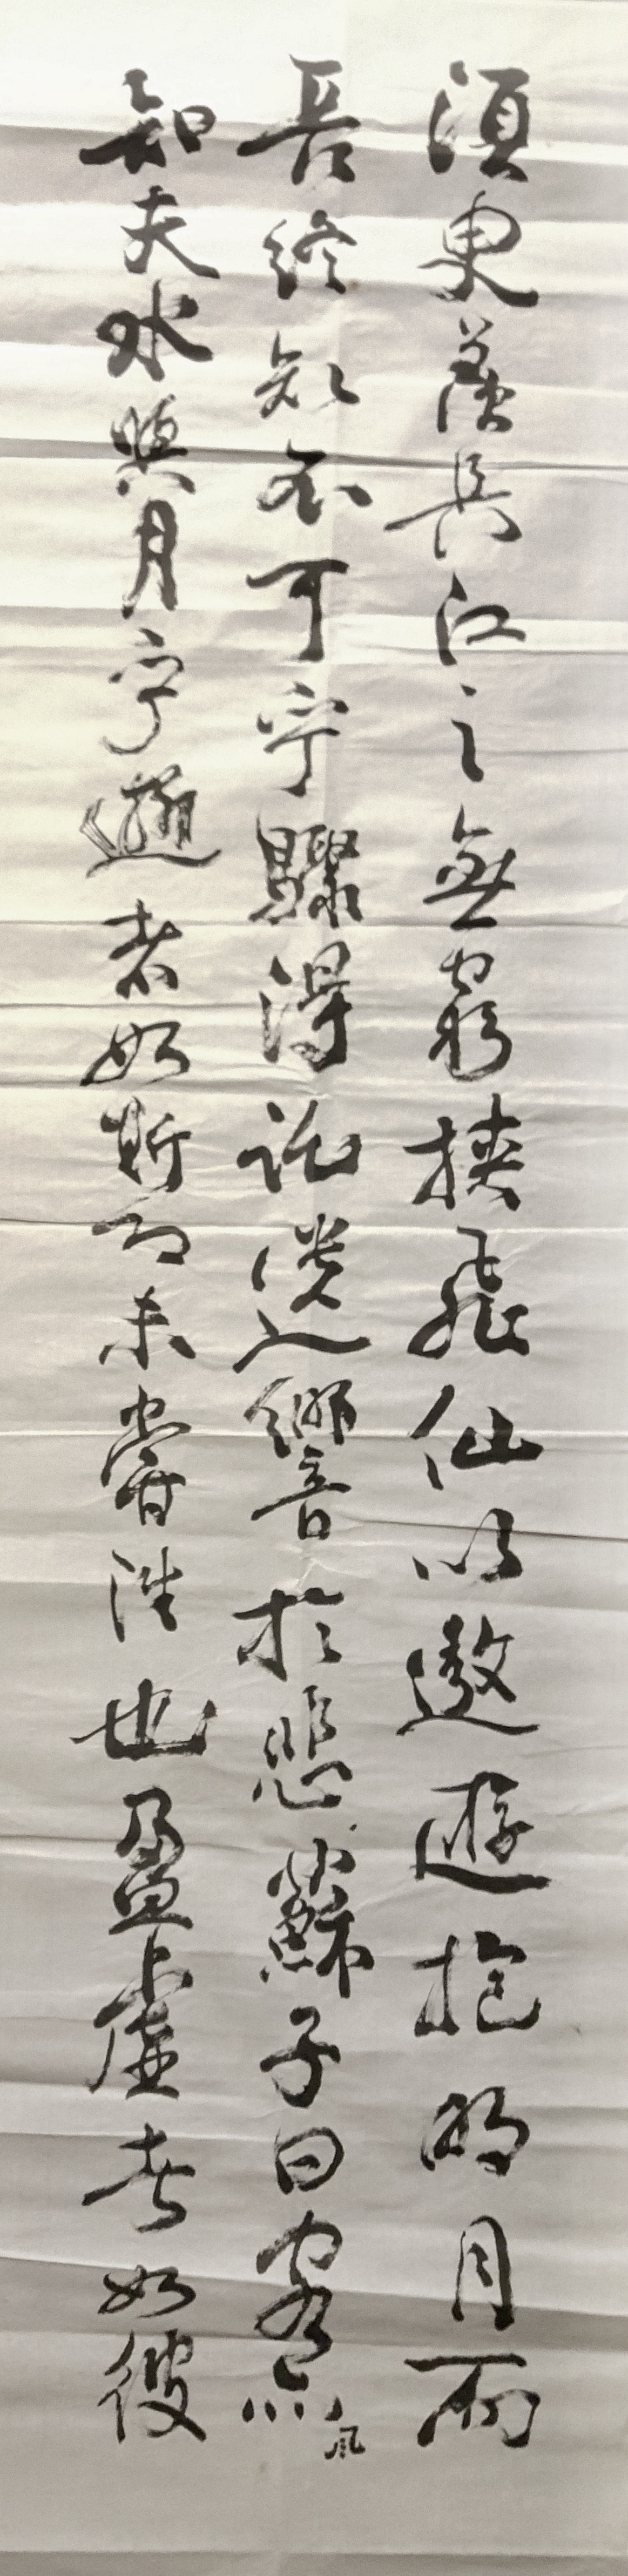 須臾羨長江之無窮挾飛仙以遨遊抱明月而
長終知不可乎驟得託遺響於悲蘇子曰客亦
風
知夫水與月乎逝者如斯而未嘗往也盈虛者如彼